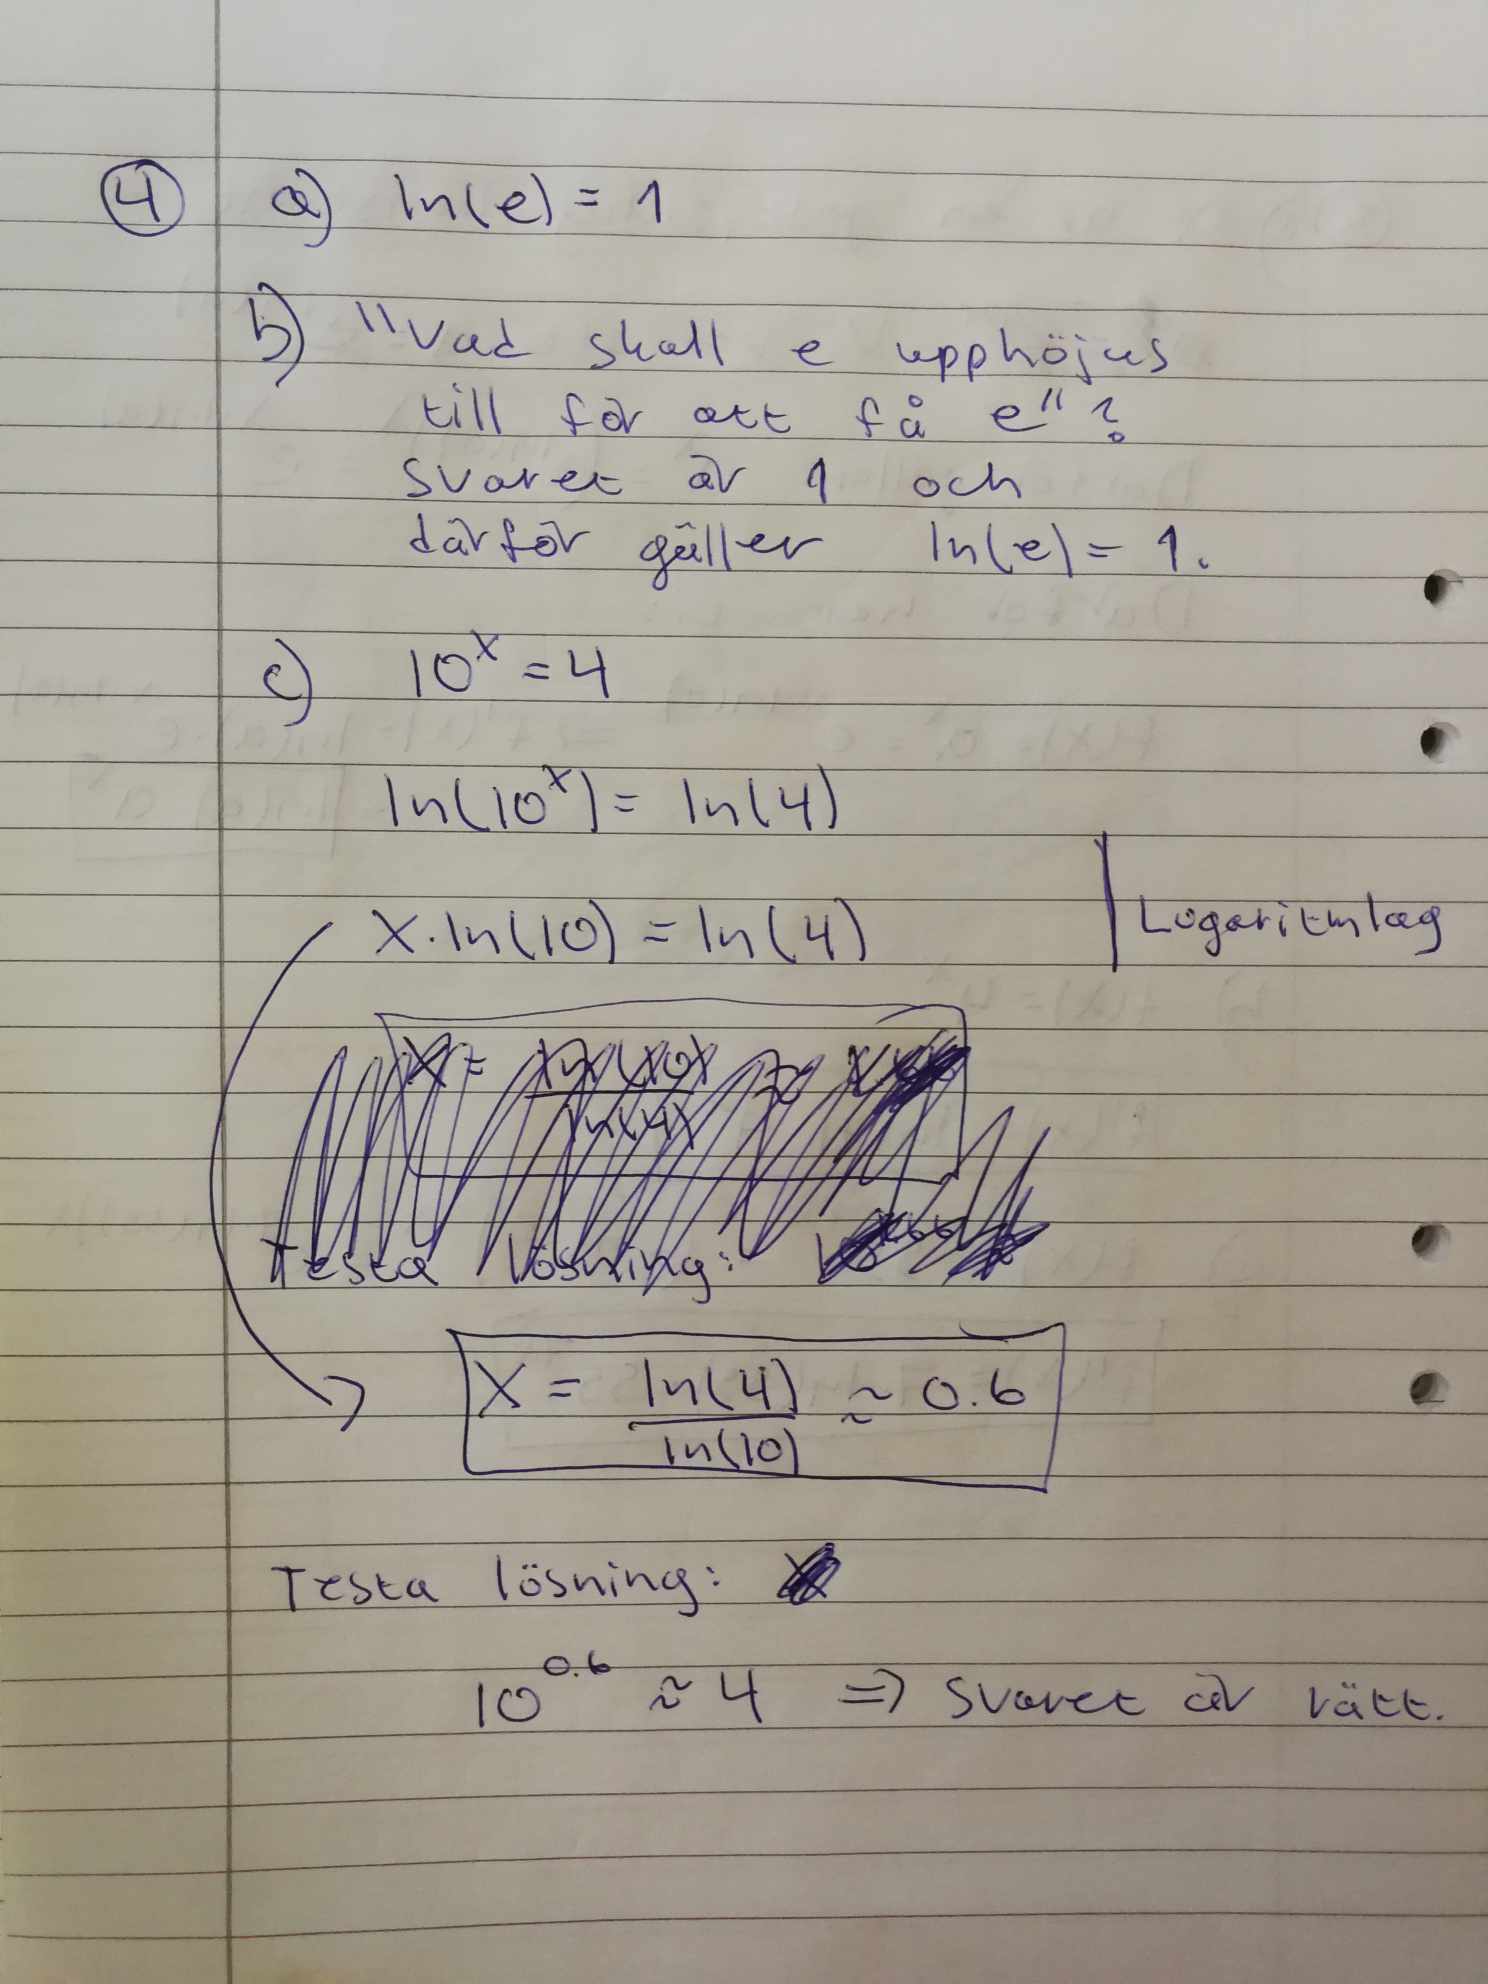 4 a) ln(e) = 1
b) "Vad skall e upphöjas
till för att få e"?
svaret är 1 och
därför gäller ln(e) = 1.
c) 10^x = 4
ln(10^x) = ln(4)
x·ln(10) = ln(4) | Logaritmlag
x = ln(10)/ln(4) ≈
Testa lösning:
x = ln(4)/ln(10) ≈ 0.6
Testa lösning:
10^0.6 ≈ 4 => svaret är rätt.